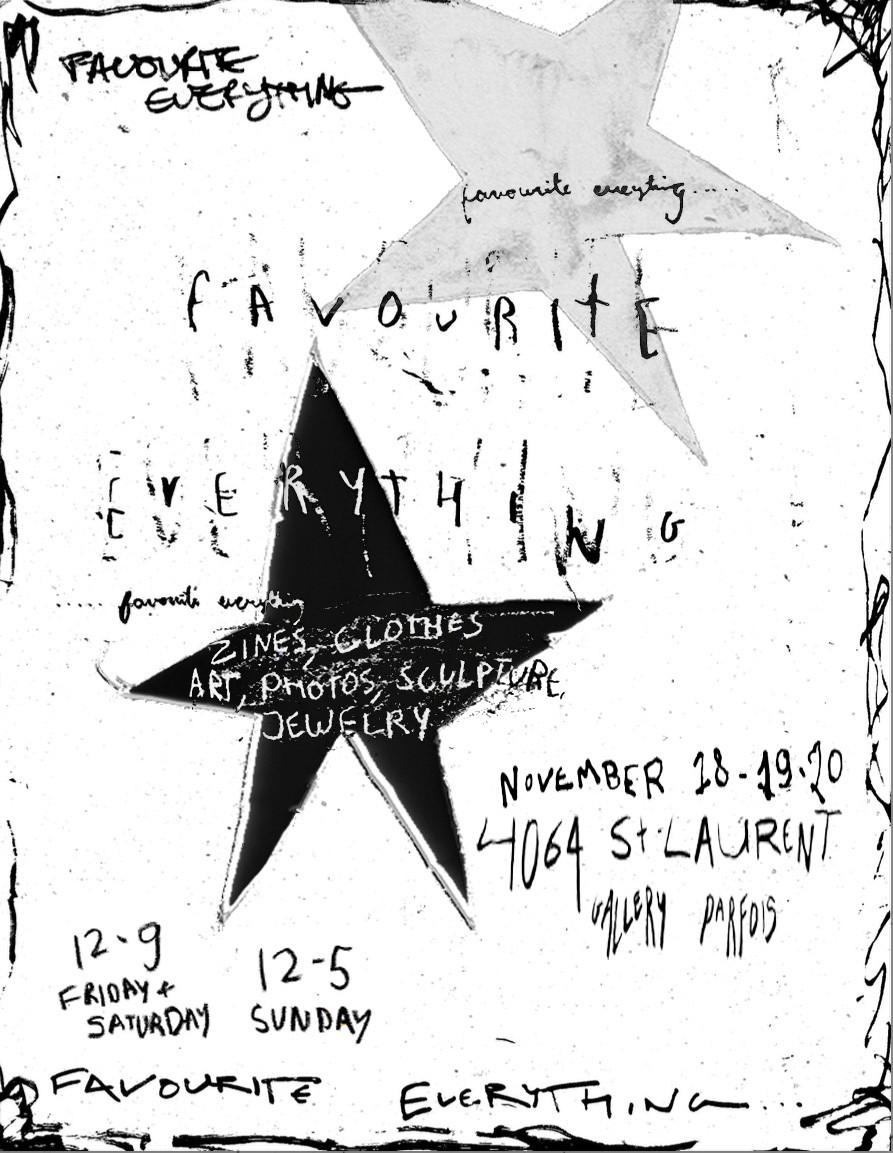 FAVOURITE
EVERYTHING
favourite eveyting.....
fAvOuRItE
EVERYTHING
..... favourite everything
ZINES, CLOTHES
ART, PHOTOS, SCULPTURE,
JEWELRY
NOVEMBER 18-19-20
4064 St-LAURENT
GALLERY PARFOIS
12-9
FRIDAY +
SATURDAY
12-5
SUNDAY
FAVOURITE EVERYTHING...